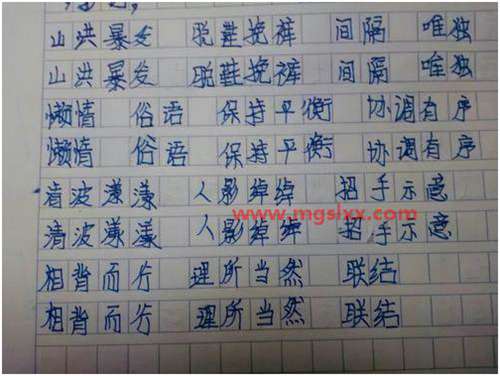 山洪暴发 脱鞋挽裤 间隔 唯独
山洪暴发 脱鞋挽裤 间隔 唯独
懒情 俗语 保持平衡 协调有序
懒情 俗语 保持平衡 协调有序
清波漾漾 人影绰绰 招手示意
www.mgshxx.com
清波漾漾 人影绰绰 招手示意
相背而行 理所当然 联结
相背而行 理所当然 联结